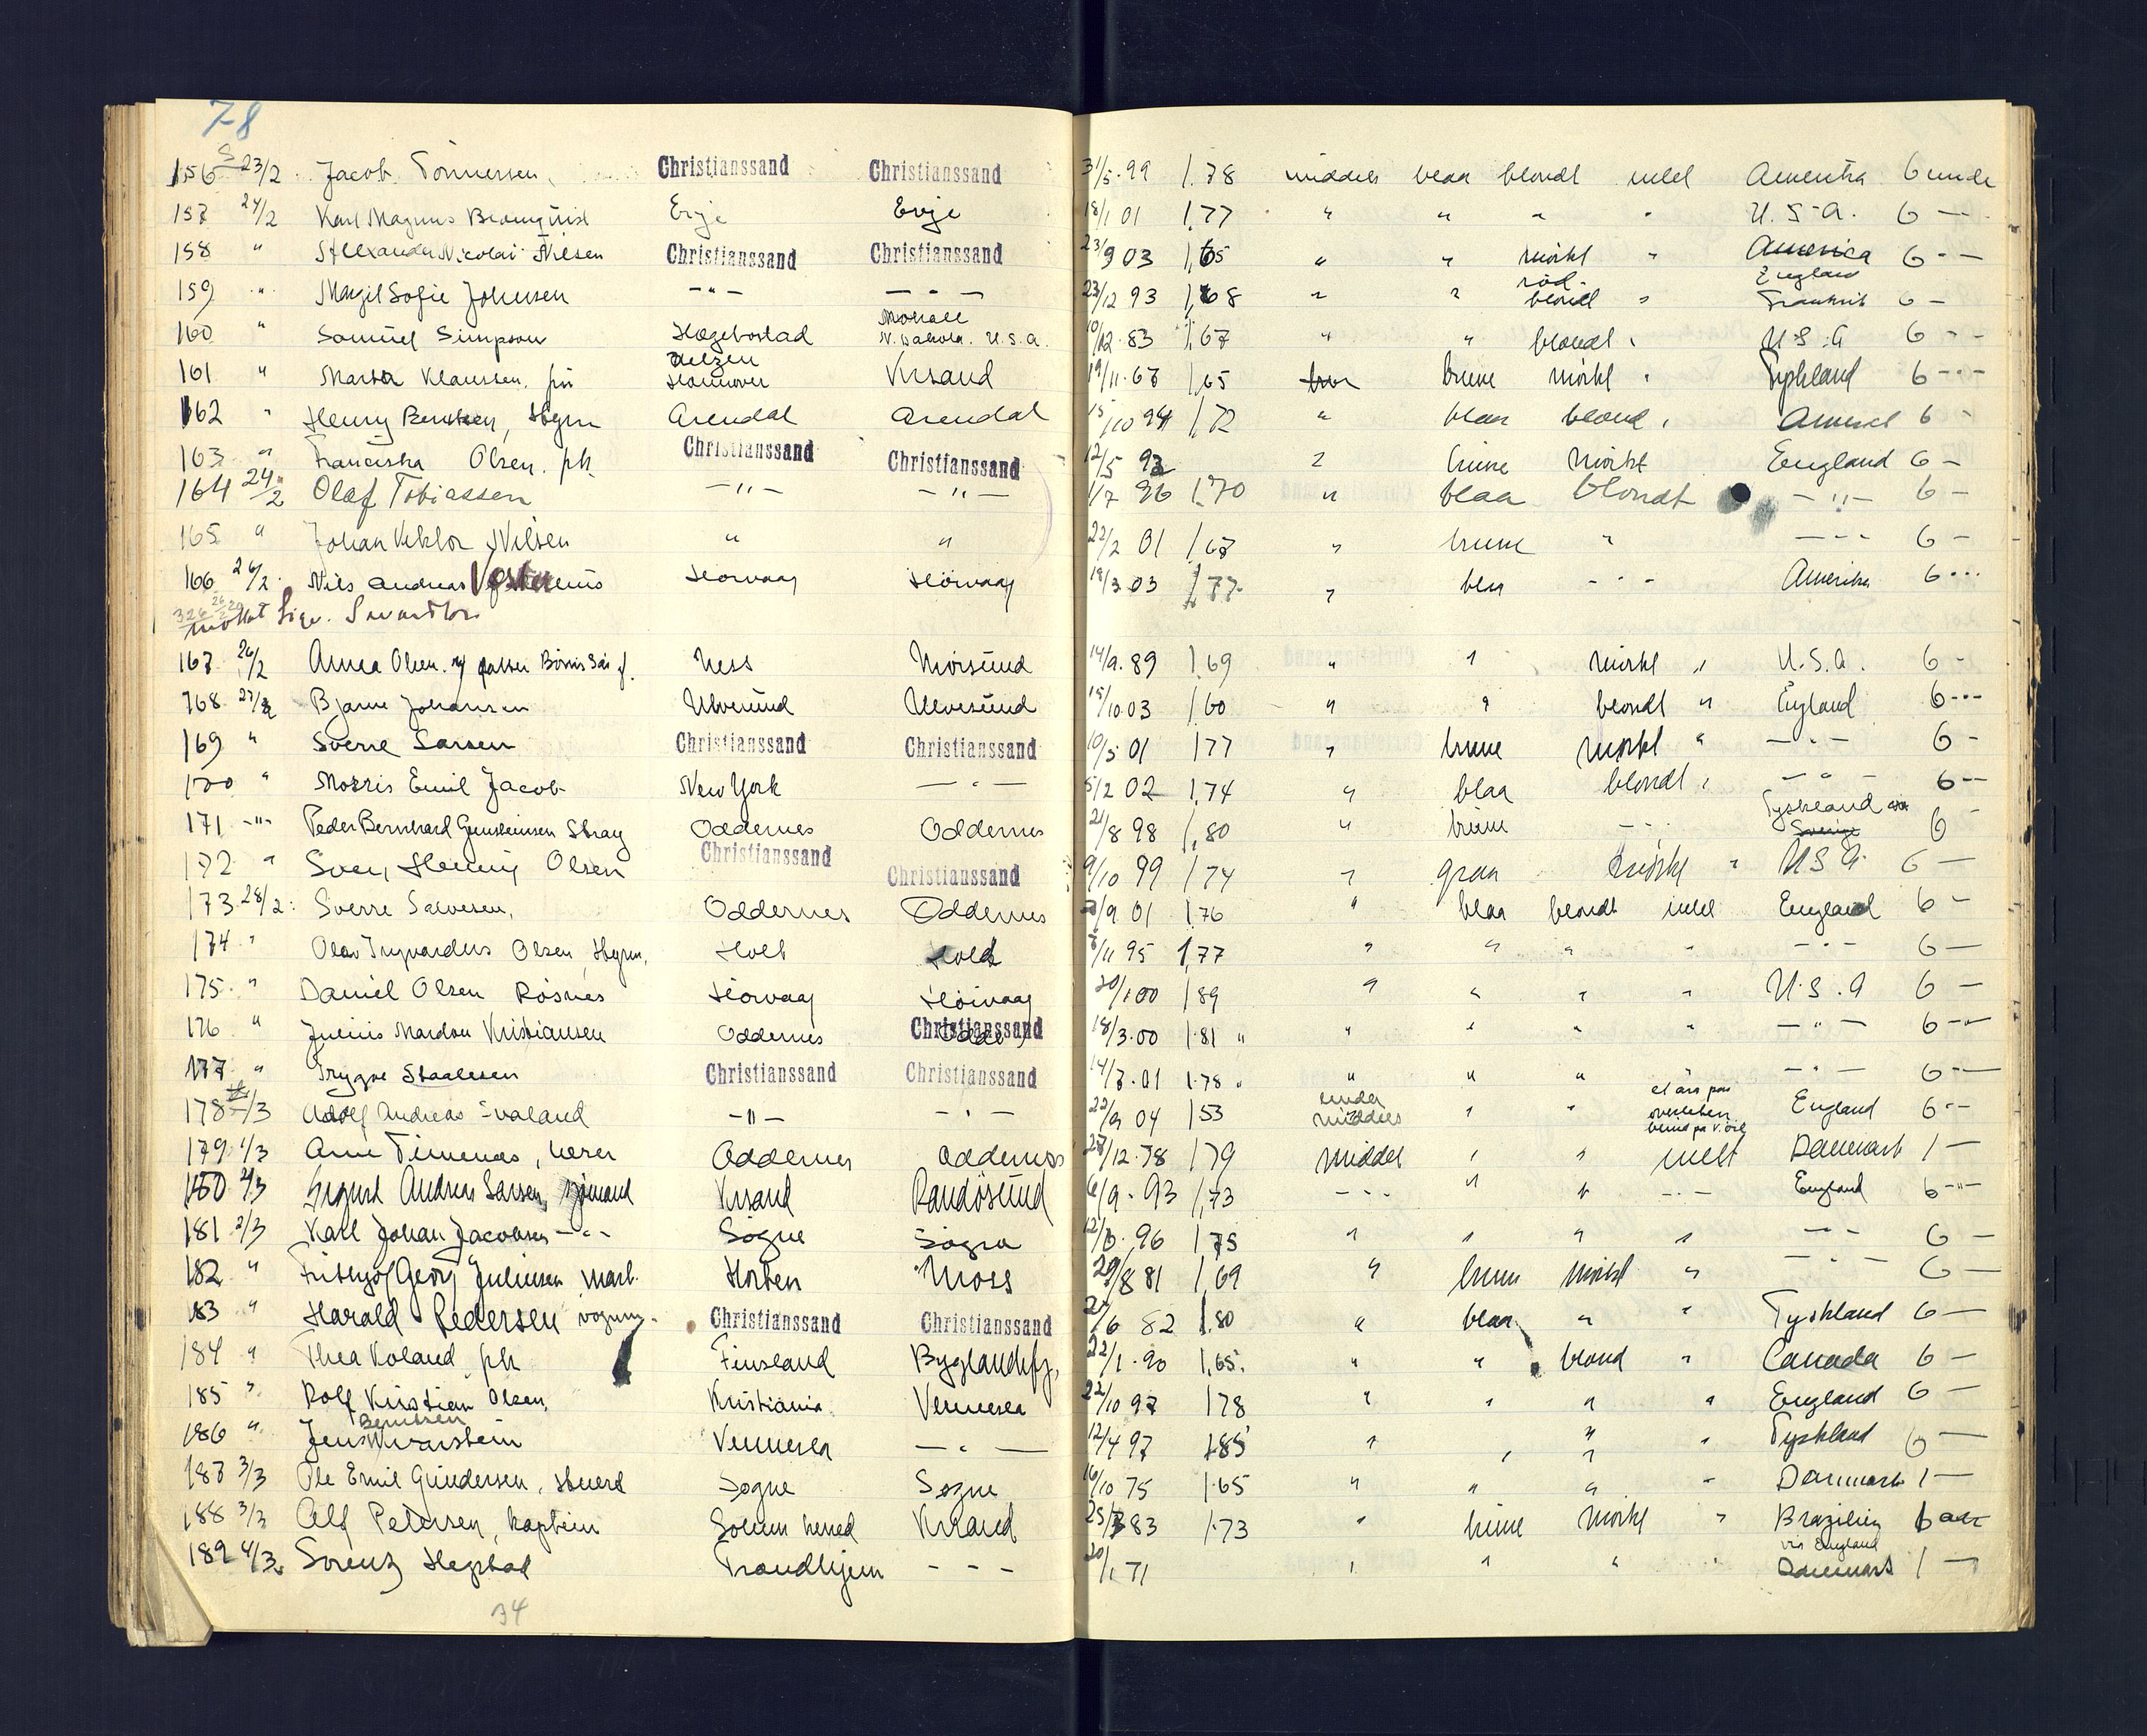 78
156 23/2 Jacob Tönnessen, Christianssand Christianssand 31/5.99 1.78 middels blaa blondt intet Amerika 6 mdr
157 24/2 Karl Magnus Blomqvist Evje Evje 18/1 01 1.77 " " " " U.S.A. 6 —
158 " Alexander Nicolai Nilsen Christianssand Christianssand 23/9 03 1,65 " " mörkt " America 6 - —
159 " Margit Sofie Johnsen — " — — " — 23/12 93 1,68 " " röd- blondt " England Frankrik 6 —
160 " Samuel Simpson Hægebostad Mohall N. Dakota. U.S.A. 10/12.83 1,67 " " blondt " U.S.A 6 - -
161 " Marta Klaussen. frü Uelzen Hannover Krsand 19/11.67 1,65 brune mörkt " Tyskland 6 - - -
162 " Henry Berntsen, Arendal Arendal 15/10 94 1,72 " blaa blond " 6 -
163 " Franciska Olsen. frk. Christianssand Christianssand 12/5 93 " brune mörkt England 6 —
164 24/2 Olaf Tobiassen — " — — " — 1/7 96 1.70 " blaa blondt — " — 6 —
165 " Johan Viktor Nilsen " " 22/2 01 1,67 " brune " — - - 6 —
166 26/2 Nils Andreas Hövaag Hövaag 18/3.03 1.77 " blaa - - - Amerika 6 ...
167 26/2 Anna Olsen. Ness Morsund 14/9.89 1.69 " " mörkt " U.S.A. 6 -
168 27/2 Bjarne Johansen Ulvesund Ulvesund 15/10.03 1,60 " " blondt " England 6 - - -
169 " Sverre Larsen Christianssand Christianssand 10/5 01 1.77 " brune mörkt " — " — 6 -
170 " Morris Emil Jacob New York — " — 5/2 02 1.74 " blaa blondt " — " — 6 —
171 — " — Peder Bernhard Gunsteinsen Stray Oddernes Oddernes 21/8 98 1,80 " brune — " — Tyskland Sverige 6
172 " Sven Henny Olsen Christianssand Christianssand 9/10 99 1,74 " graa mörkt " U S A. 6 —
173 28/2 Sverre Salvesen, Oddernes Oddernes /9 01 1.76 " blaa blondt intet England 6 —
174 " Olav Ingvardus Olsen, Holt Holt /11 95 1,77 " " " " — " — 6 —
175. " Daniel Olsen Rosnes Hövaag Hövaag 20/1.00 1,89 " " " " U.S.A 6 —
176 " Julius Mardon Kristiansen Oddernes Christianssand 18/3.00 1.81 " " " " " — " — 6 —
177 " Trygve Staalesen Christianssand Christianssand 14/7.01 1.78 " " " " — " — 6 —
178 1/3 Adolf Andreas Svaland — " — — " — 22/9 04 1,53 under middels " " et ars paa overleben blind pa v. öie England 6 —
179 1/3 Arne Timenes, Oddernes Oddernes 28/12.78 1,79 middel " " intet Danmark 1 —
180 2/3 Sigurd Andreas Larsen, sjömand Krsand Randösund 6/9.93 1,73 - - - " " — " — England 6 — " —
181 2/3 Karl Johan Jacobsen — " — Sögne Sögne 12/6.96 1,75 " " " " — " — 6 —
182 " Frithjof Georg Juliussen, Horten Moss 29/8 81 1,69 " brune mörkt " — " — 6 —
183 " Harald Pedersen Christianssand Christianssand 24/6 82 1.80 " blaa " " Tyskland 6 —
184 " Thea Roland frk Finsland Byglandsfj. 22/1.90 1,65. " " blond " Canada 6 —
185 " Rolf Kristian Olsen, Kristiania Vennesla 22/10 97 1,78 " " " " England 6 —
186 " Jens Berntsen Kvarstein Vennesla — " — 12/4 97 1.85 " " " " Tyskland 6 —
187 3/3 Ole Emil Gundersen, Sogne Sogne 16/10 75 1.65 " " " " Danmark 1 —
188 3/3 Alf Petersen, kaptein Solum herred Krsand 25/ 83 1.73 " brune mörkt " Brazilien via England 6 mdr
189 4/3 Lorentz Hegstad Trondhjem — - - 20/1 71 " " " " Danmark 1 —
34